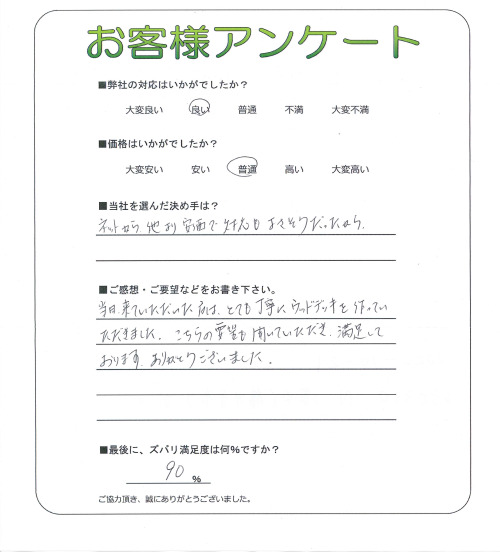 お客様アンケート
■弊社の対応はいかがでしたか？
大変良い 良い 普通 不満 大変不満
■価格はいかがでしたか？
大変安い 安い 普通 高い 大変高い
■当社を選んだ決め手は？
ネットから、他より安価で対応もよさそうだったから。
■ご感想・ご要望などをお書き下さい。
当日、来ていただいた方は、とても丁寧にウッドデッキを作ってい
ただきました。こちらの要望も聞いていただき、満足して
おります。ありがとうございました。
■最後に、ズバリ満足度は何%ですか？
90 %
ご協力頂き、誠にありがとうございました。